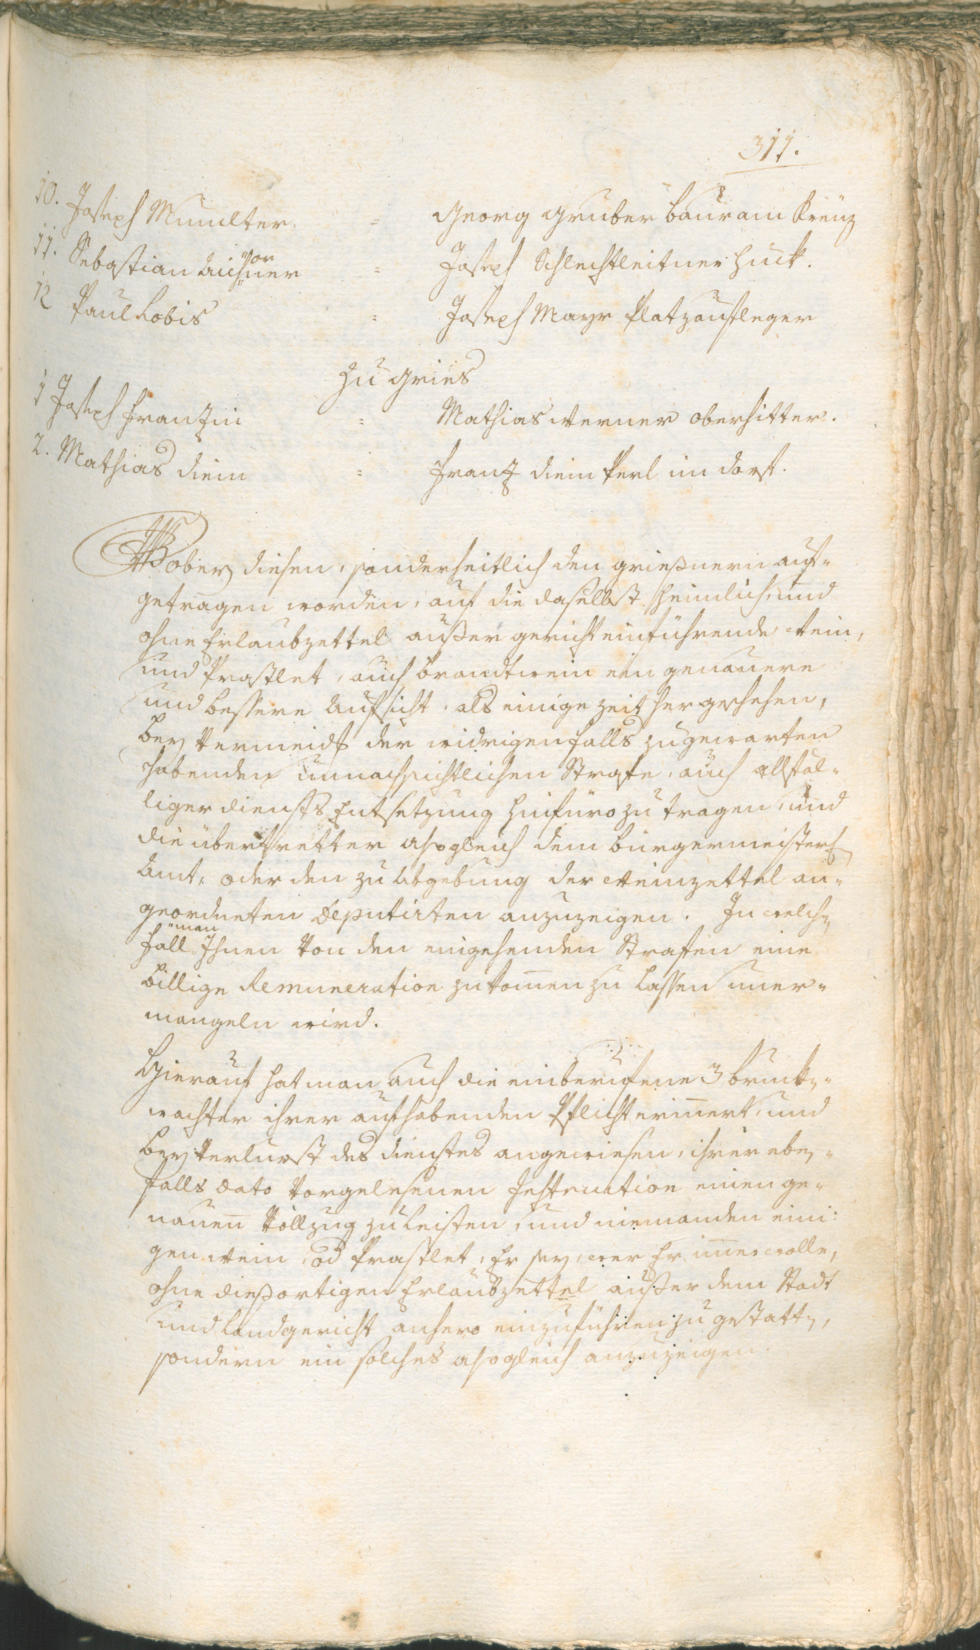 311.
10. Joseph Mumelter. = Georg Gruber baur am Kreuz
11. Sebastian Aichner = Joseph Schlechtleitner Huck.
12 Paul Lobis = Joseph Mayr Platzaufleger
Zu Gries
1 Joseph Franzin = Mathias Werner Obersitter.
2. Mathias Diem = Franz Diem Perl im Dorf.
Wobey diesen, sonderheitlich den Grießnern auf-
getragen worden, auf die daselbst heimlich, und
ohne Erlaubzettel außer Gericht einführende Wein,
und Praßlet, auch Brandtwein ein genauere
und bessere Aufsicht, als einige Zeit her geschehen,
bey Vermeidt der widrigenfalls zugewarten
habenden unnachsichtlichen Strafe, auch allfäl-
liger Diensts Entsetzung hinfüro zu tragen, und
die übertretter alsogleich dem Burgermeister
Amt, oder den zu Abgebung der Weinzettel an-
geordneten Deputirten anzuzeigen. In welch
fall man Ihnen von den eingehenden Strafen eine
billige Remuneration zukomen zu lassen uner-
mangeln wird.
Hierauf hat man auch die einberufene 3 Bruck-
wachter ihrer aufhabenden Pflicht erinnert, und
bey Verlurst des Dienstes angewiesen, ihrer eben-
falls dato vorgelesenen Instruction einen ge-
nauen Vollzug zu leisten, und niemanden eini-
gen Wein, od Praßlet, Er sey, wer Er immer wolle,
ohne dießortigen Erlaubzettel außer dem Stadt
und Landgericht anhero einzuführen zu gestatt,
sondern ein solches alsogleich anzuzeigen.